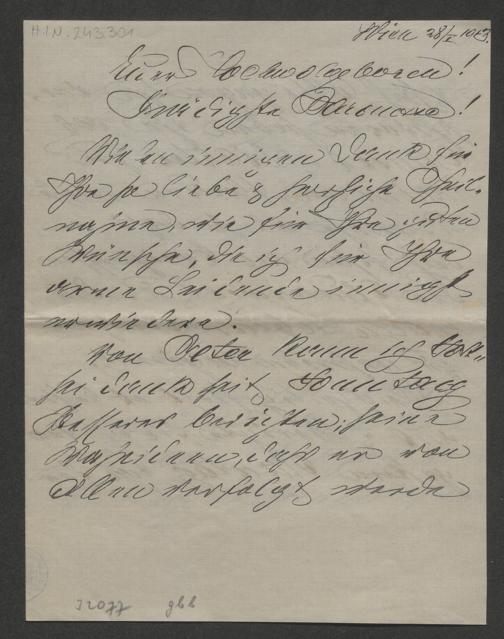 H.I.N. 243.301
Wien 28/I 1903.
Euer Hochwolgeboren!
Gnädigste Baronin!
Vielen innigen Dank für
Ihre so liebe & herzliche Theil-
name, wie für Ihre guten
Wünsche, die ich für Ihre
arme Leidende innigst
erwiedere.
Von Peter kann ich Gott„
sei dank seit Sonntag
Besseres berichten, seine
Wahnideen, daß er von
Allen verfolgt werde
J 2077